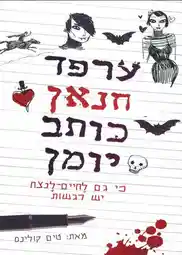 ערפד
חנאן
כותב
יומן
כי גם לחיים-לנצח
יש רגשות
מאת: טים קולינס